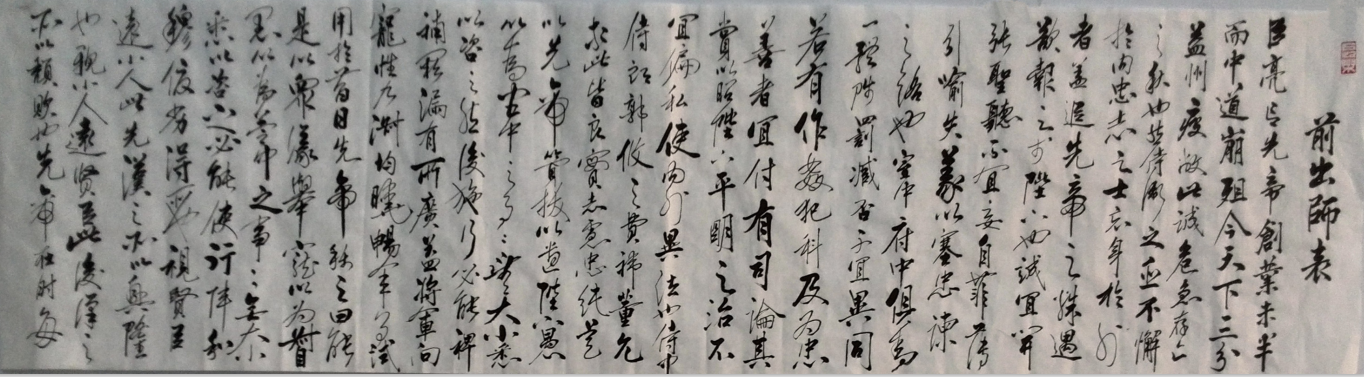 前出师表
臣亮言先帝創業未半
而中道崩殂今天下三分
益州疲敝此誠危急存亡
之秋也然侍衛之臣不懈
於内忠志之士忘身於外
者盖追先帝之殊遇
欲報之於陛下也誠宜開
張聖聽不宜妄自菲薄
引喻失義以塞忠諫
之路也宮中府中俱為
一體陟罰臧否不宜異同
若有作姦犯科及為忠
善者宜付有司論其
賞以昭陛下平明之治不
宜偏私使内外異法也侍中
侍郎郭攸之費禕董允
等此皆良實志慮忠純是
以先帝簡拔以遺陛下愚
以為宮中之事事無大小悉
以咨之然後施行必能裨
補闕漏有所廣益將軍向
寵性行淑均曉暢軍事試
用於昔日先帝稱之曰能
是以眾議舉寵以為督
愚以為營中之事事無大小
悉以咨之必能使行陣和
穆優劣得所也親賢臣
遠小人此先漢之所以興隆
也親小人遠賢臣此後漢之
所以頹敗也先帝在時每